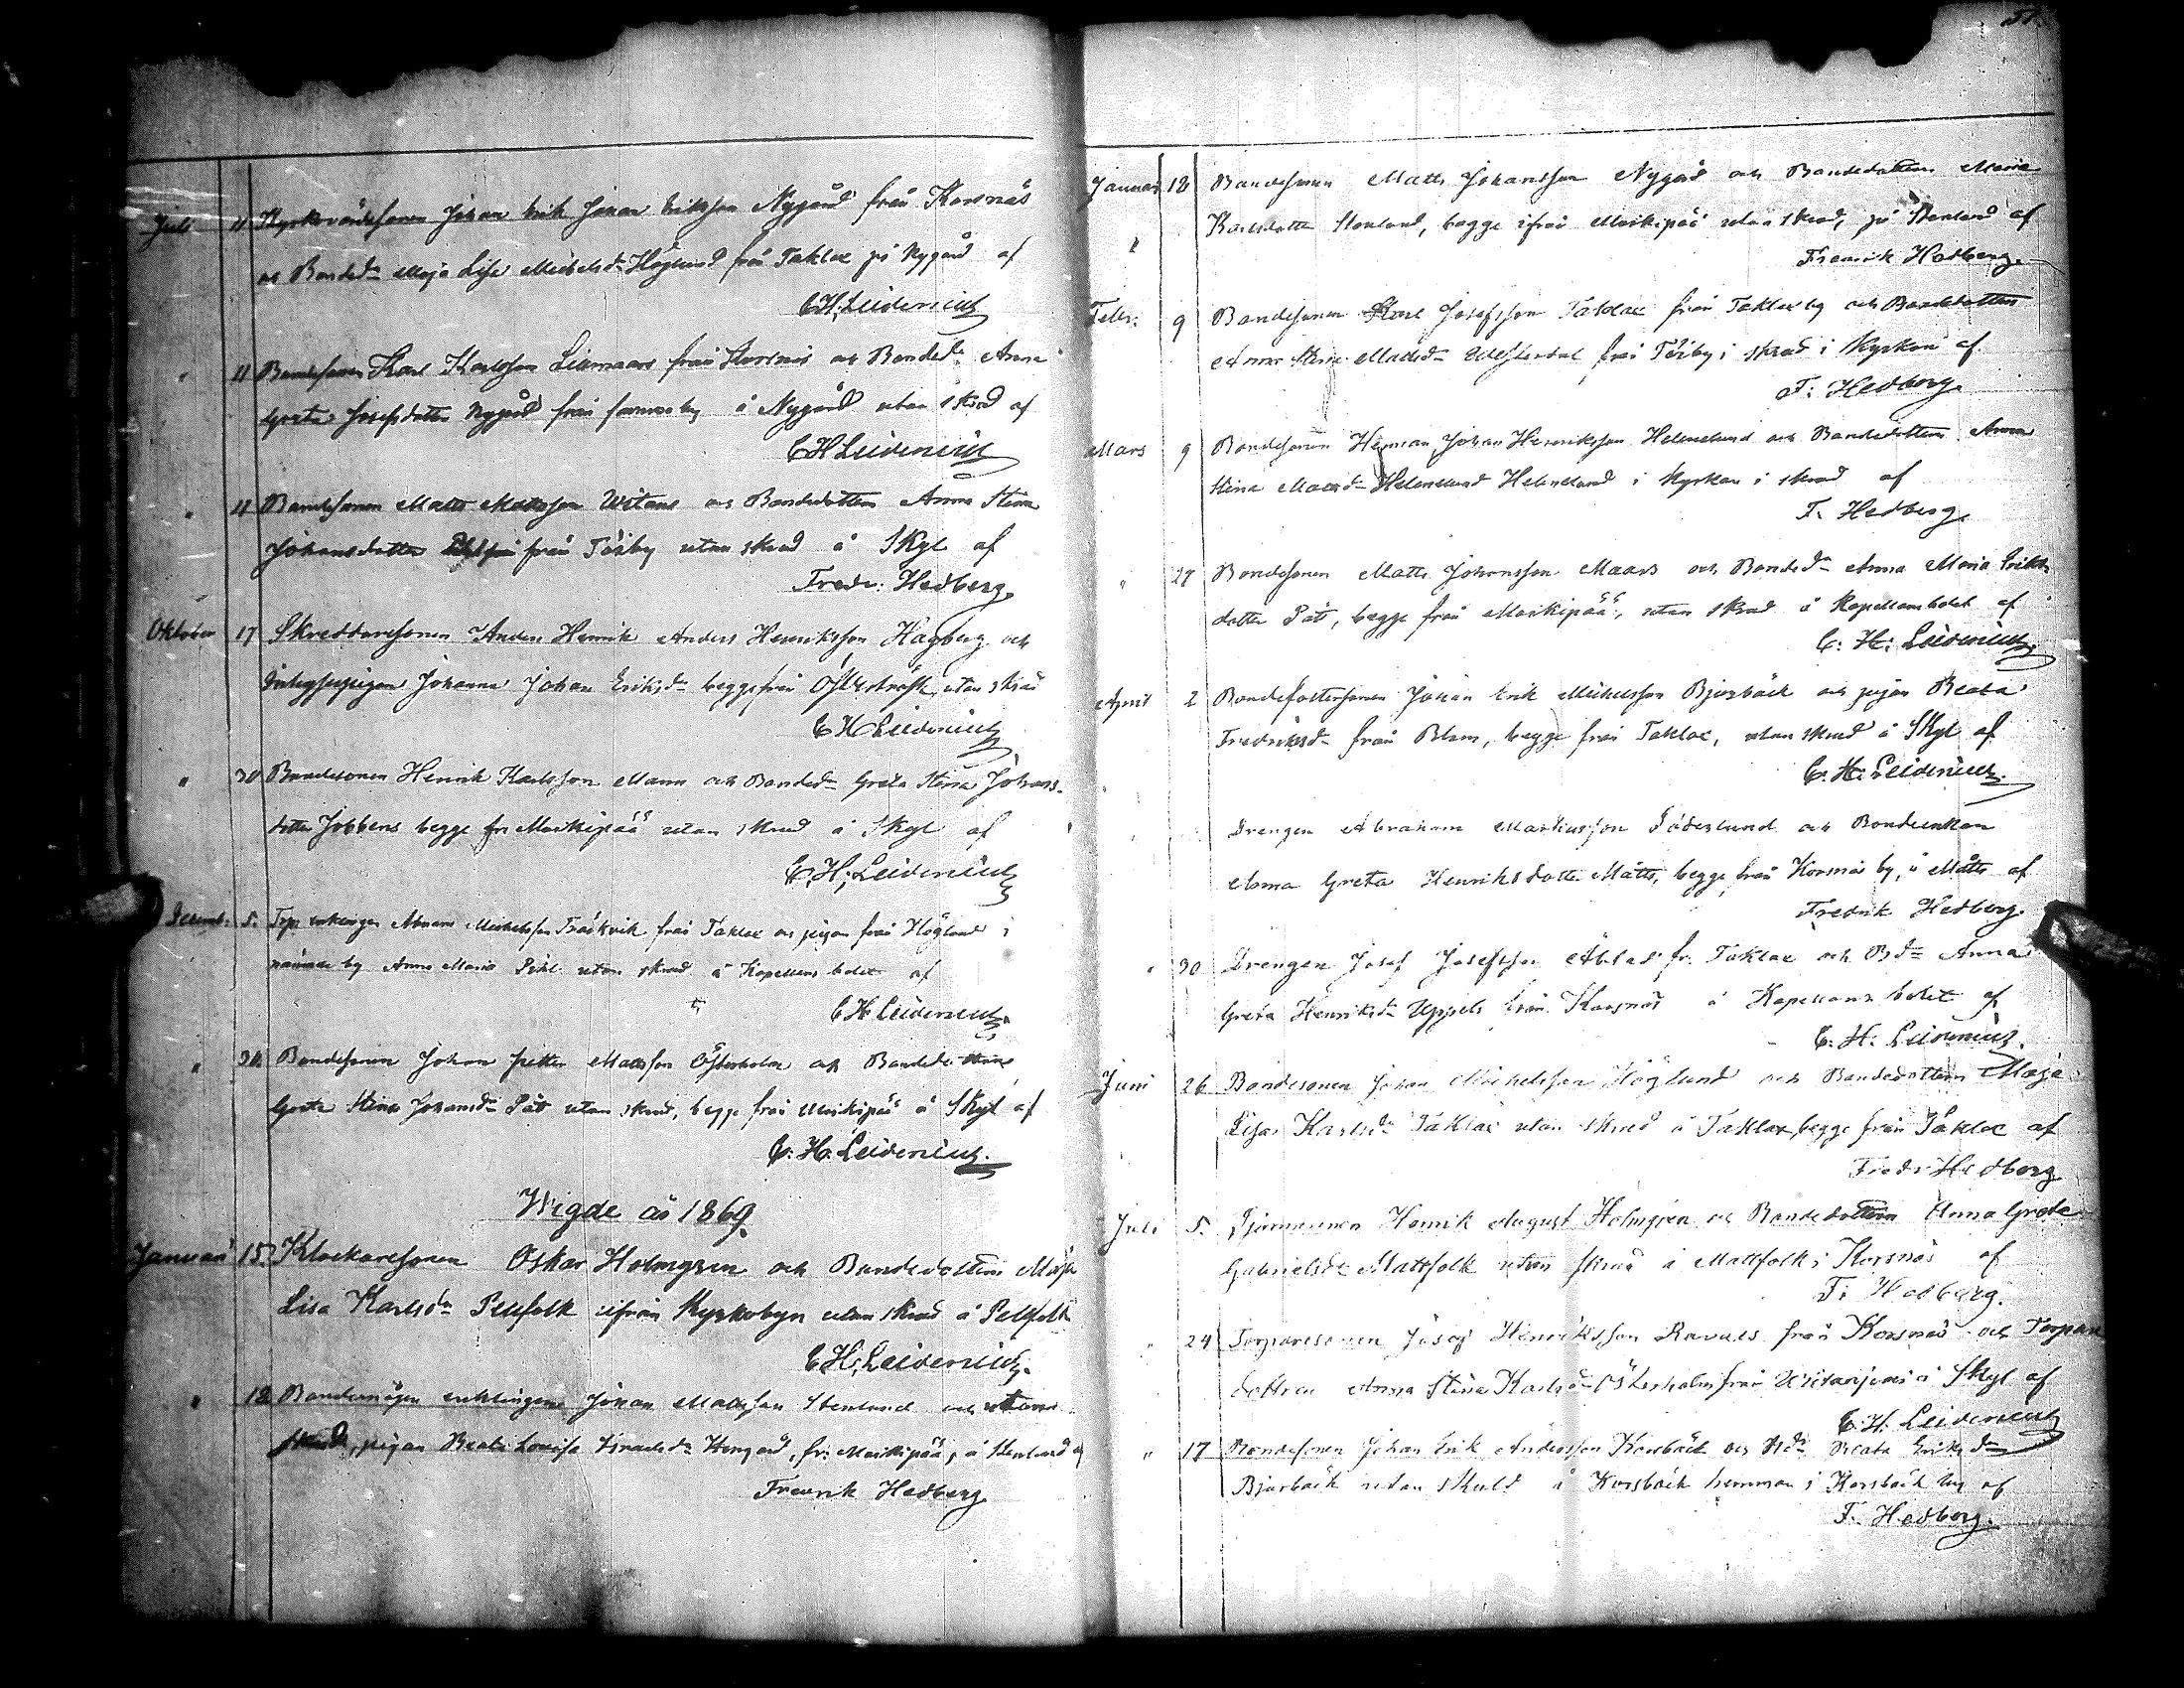 51.
Juli 11 Kyrkovärdsonen Johan Erik Johan Eriksson Nygård från Korsnäs
och Bonded:n Maja Lisa Michelsd:n Höglund från Taklax på Nygård af
C H Leidenius
" 11 Bondesonen Karl Karlsson Lillmaars från Korsnäs och Bonded:n Anna
Greta Josefsdotter Nygård från samma by å Nygård utan skrud af
C H Leidenius
" 11 Bondesonen Matts Mattsson och Bondedottern Anna Stina
Johansdotter från Töjby utan skrud å Skyt af
Fredr: Hedberg
Oktober 17 Skreddaresonen Anders Henrik Anders Henriksson Hagberg och
Inhysespigan Johanna Johan Eriksd:n begge från utan skrud
C H Leidenius
" 30 Bondesonen Henrik Karlsson Mann och Bonded:n Greta Stina Johans-
dotter Jobbens begge fr. Moikipää utan skrud å Skyt af
C. H. Leidenius
Decemb: 5. Torp. enklingen Abram Michelsson Träskvik från Taklax och pigan från Höglund i
nämnde by Anna Maria utan skrud å Kapellans bolet af
C H Leidenius
" Bondesonen Johan Petter Mattsson Österholm och Bonded:n
Greta Stina Johansd:n Påt utan skrud, begge från Moikipää å Skyt af
C. H. Leidenius.
Wigde år 1869.
Januari 15. Klockaresonen Oskar Holmgren och Bondedottern Maja
Lisa Karlsd:n Pellfolk ifrån Kyrkobyn utan skrud å Pellfolk
C H. Leidenius.
" 12 Bondemågen enklingen Johan Mattsson Stenlund och utan
skrud, pigan Beata Lovisa Israelsd:n fr. Moikipää, å Stenlund af
Fredrik Hedberg
Januari 12 Bondesonen Matts Johansson Nygård och Bondedottern Maria
Karlsdotter Stenlund, begge ifrån Moikipää utan skrud, på Stenlund af
Fredrik Hedberg.
Febr: 9 Bondesonen Karl Josefsson Taklax från Taklax by och Bondedottern
Anna Stina Mattsd:n Westerdal från Töjby i skrud i Kyrkan af
F. Hedberg.
Mars 9 Bondesonen Herman Johan Henriksson Helenelund och Bondedottern Anna
Stina Mattsd:n Helenelund Helenelund i Kyrkan i skrud af
F. Hedberg.
" 27 Bondesonen Matts Johansson Maars och Bonded:n Anna Maria Eriks
dotter Påt, begge från Moikipää, utan skrud å Kapellansbolet af
C. H. Leidenius
April 2 Bondefostersonen Johan Erik Michelsson Bjurbäck och pigan Beata
Fredriksd:n från Blom, begge från Taklax, utan skrud å Skyt af
C. H. Leidenius.
Drengen Abraham Markusson Söderlund och Bondeenkan
Anna Greta Henriksdotter Måtts, begge från Korsnäs by, å Måtts af
Fredrik Hedberg.
" 30 Drengen Josef Josefsson fr. Taklax och Bd:n Anna
Greta Henriksd:n från Korsnäs å Kapellans bolet af
C. H. Leidenius.
Juni 26 Bondesonen Johan Michelsson Höglund och Bondedottern Maja
Lisa Karlsd:n Taklax utan skrud å Taklax begge från Taklax af
Fredr Hedberg
Juli 5. Sjömannen Henrik August Holmgren och Bondedottern Anna Greta
Gabrielsd:n Mattfolk utan skrud å Mattfolk i Korsnäs af
F. Hedberg.
" 24 Torparesonen Josef Henriksson från Korsnäs och Torpare
dottren Anna Stina Karlsd:n Österholm från å Skyt af
C. H. Leidenius
" 17 Bondesonen Johan Erik Andersson Korsbäck och Bd:n Beata Eriksd:n
Bjurbäck utan skuld å Korsbäck hemman i Korsbäck by af
F. Hedberg.